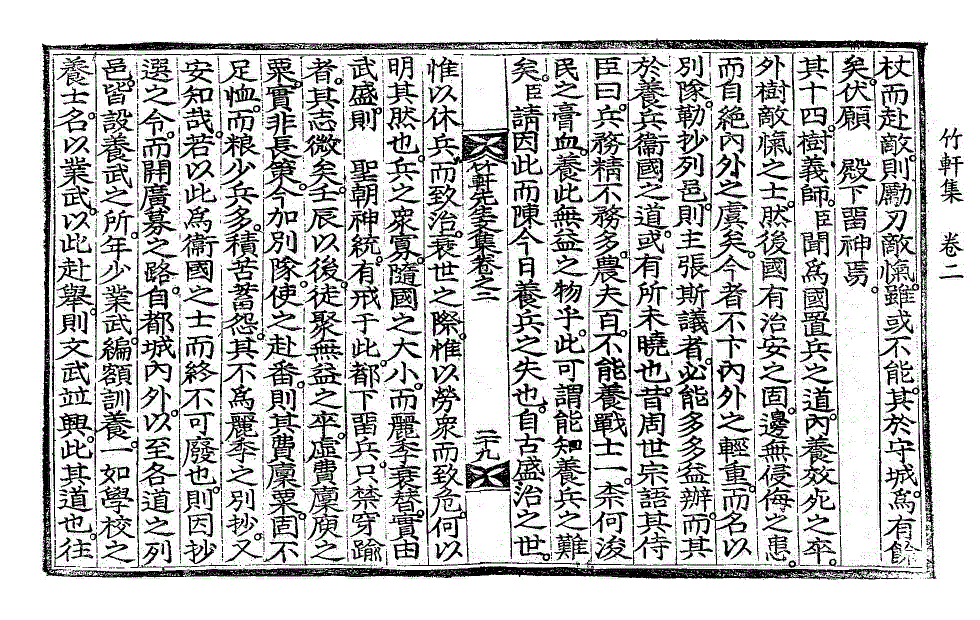 竹軒集 卷二
杖而赴敵。則勵刃敵愾。雖或不能。其於守城。爲有餘
矣。伏願 殿下留神焉。
其十四樹義師。臣聞爲國置兵之道。內養效死之卒。
外樹敵愾之士。然後國有治安之固。邊無侵侮之患。
而自絶內外之虞矣。今者不卞內外之輕重。而名以
別隊。勒抄列邑。則主張斯議者。必能多多益辦。而其
於養兵衛國之道。或有所未曉也。昔周世宗語其侍
臣曰。兵務精不務多。農夫百。不能養戰士一。柰何浚
民之膏血。養此無益之物乎。此可謂能知養兵之難
矣。臣請因此而陳今日養兵之失也。自古盛治之世。
竹軒先生文集卷之二 二十九
惟以休兵。而致治。衰世之際。惟以勞衆而致危。何以
明其然也。兵之衆寡。隨國之大小。而麗季衰替。實由
武盛。則 聖朝神統。有戒于此。都下留兵。只禁穿踰
者。其志微矣。壬辰以後。徒聚無益之卒。虛費廩庾之
粟。實非長策。今加別隊。使之赴番。則其費廩粟。固不
足恤。而粮少兵多。積苦蓄怨。其不爲麗季之別抄。又
安知哉。若以此爲衛國之士而終不可廢也。則因抄
選之令。而開廣募之路。自都城內外。以至各道之列
邑。皆設養武之所。年少業武。編額訓養。一如學校之
養士。名以業武。以此赴擧。則文武並興。此其道也。往